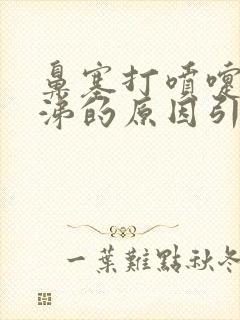 鼻塞打喷嚏
涕的原因引
一葉難點秋冬